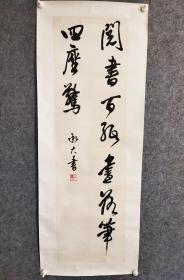 閱書百紙盡落筆
四座驚
書